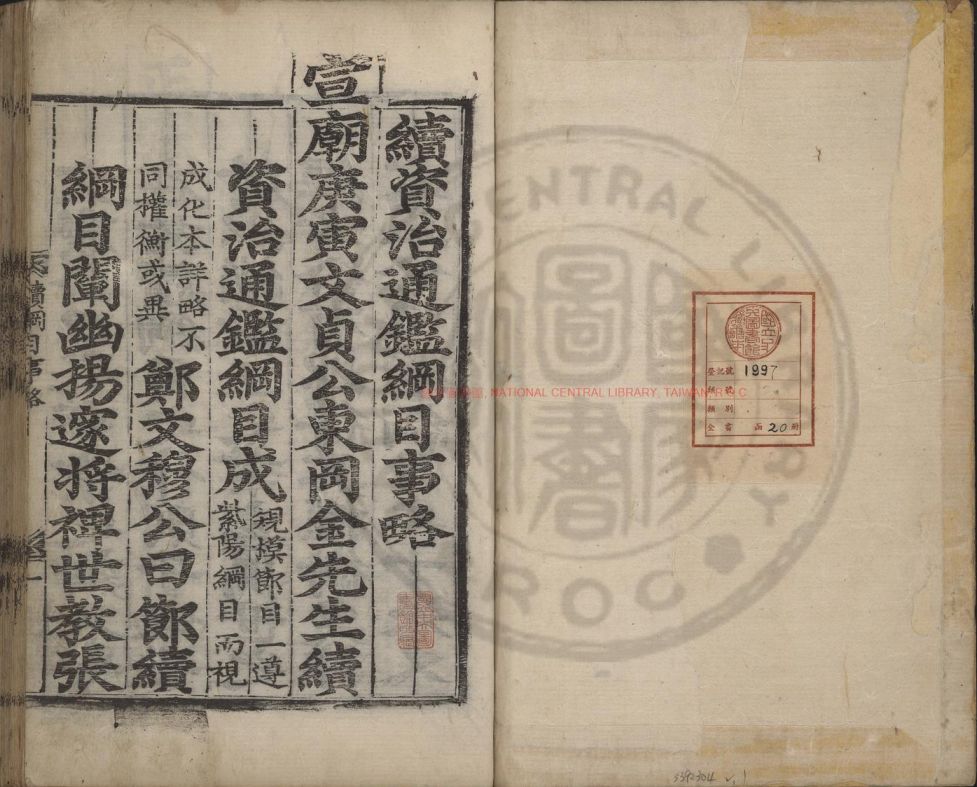 續資治通鑑綱目事略
宣廟庚寅文貞公東岡金先生續
資治通鑑綱目成
規模節目一遵
紫陽綱目而視
成化本詳略不
同權衡或異
鄭文穆公曰節續
綱目闡幽揚邃將裨世教張
續綱目事略
NATIONAL CENTRAL LIBRARY, TAIWAN, R O C
登記號 1997
類號
類別
全書 函 20 冊
CENTRAL LIBRARY
ROC
圖
書